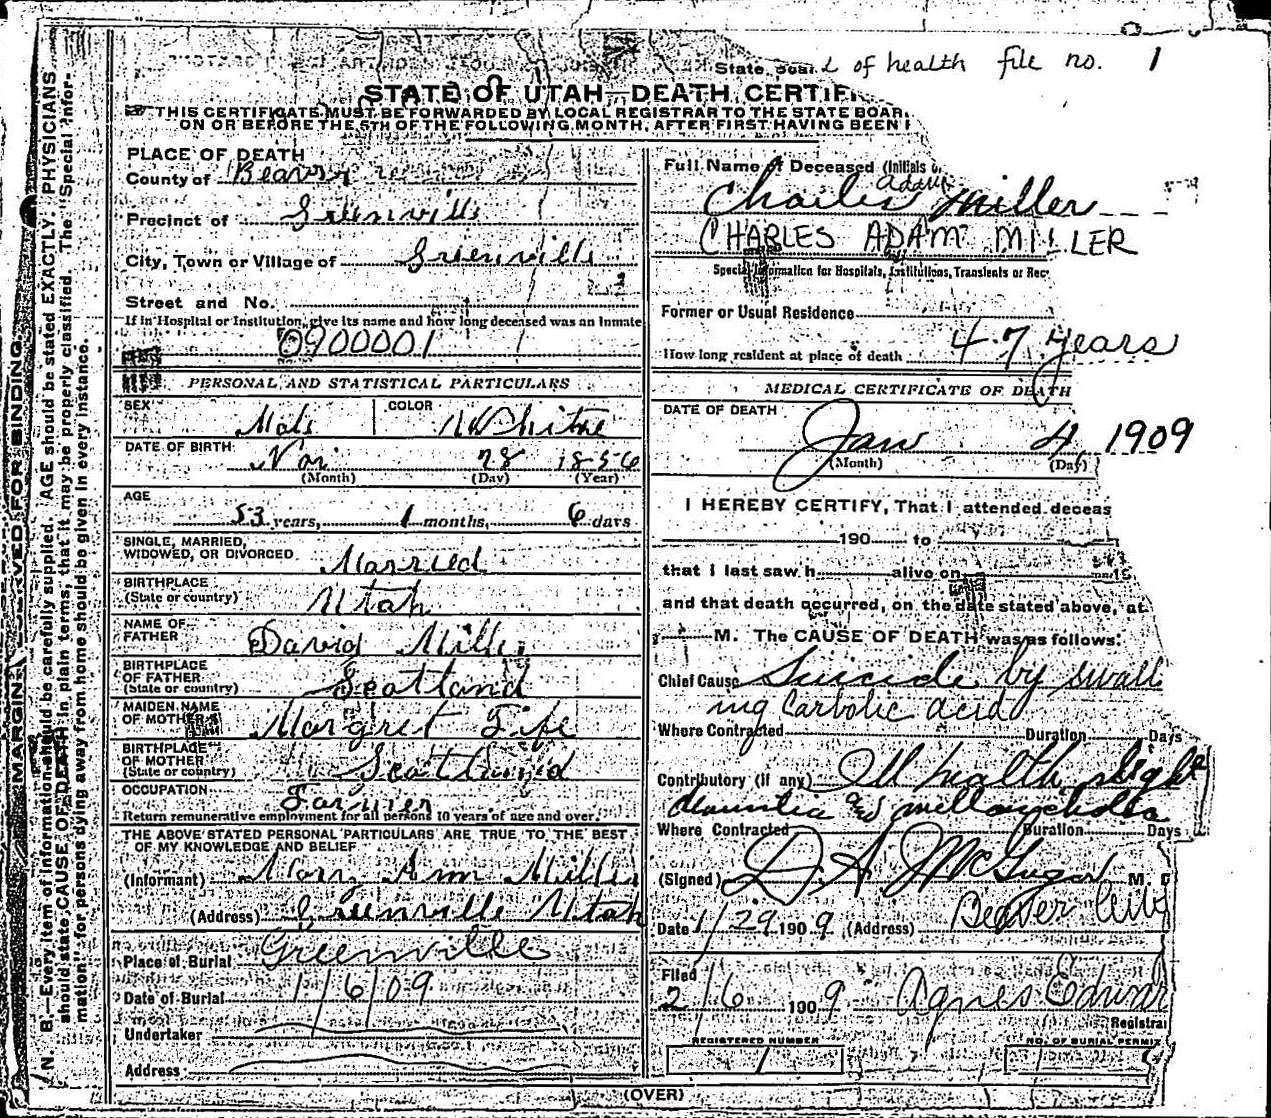 State Board of health file no. 1
STATE OF UTAH—DEATH CERTIF
THIS CERTIFICATE MUST BE FORWARDED BY LOCAL REGISTRAR TO THE STATE BOAR
ON OR BEFORE THE 5TH OF THE FOLLOWING MONTH, AFTER FIRST HAVING BEEN
MARGINAL RESERVED FOR BINDING.
N. B.—Every item of information should be carefully supplied. AGE should be stated EXACTLY. PHYSICIANS
should state CAUSE OF DEATH in plain terms, that it may be properly classified. The "Special Infor-
mation" for persons dying away from home should be given in every instance.
PLACE OF DEATH
County of Beaver
Precinct of Greenville
City, Town or Village of Greenville
Street and No.
If in Hospital or Institution, give its name and how long deceased was an Inmate
0900001
PERSONAL AND STATISTICAL PARTICULARS
SEX Male COLOR White
DATE OF BIRTH Nov 28 1856
(Month) (Day) (Year)
AGE
53 years, 1 months, 6 days
SINGLE, MARRIED,
WIDOWED, OR DIVORCED Married
BIRTHPLACE
(State or country) Utah
NAME OF
FATHER David Miller
BIRTHPLACE
OF FATHER
(State or country) Scotland
MAIDEN NAME
OF MOTHER Margret Fife
BIRTHPLACE
OF MOTHER
(State or country) Scottland
OCCUPATION Farmer
Return remunerative employment for all persons 10 years of age and over.
THE ABOVE STATED PERSONAL PARTICULARS ARE TRUE TO THE BEST
OF MY KNOWLEDGE AND BELIEF
(Informant) Ann Miller
(Address) Greenville Utah
Place of Burial Greenville
Date of Burial 1/6/09
Undertaker
Address
Full Name of Deceased (Initials
Charles Adam Miller
CHARLES ADAM MILLER
Special Information for Hospitals, Institutions, Transients or Rec
Former or Usual Residence
How long resident at place of death 47 years
MEDICAL CERTIFICATE OF DEATH
DATE OF DEATH
Jan 4 1909
(Month) (Day)
I HEREBY CERTIFY, That I attended deceas
190 to
that I last saw h alive on
and that death occurred, on the date stated above, at
M. The CAUSE OF DEATH was as follows:
Chief Cause Suicide by swall
ing Carbolic acid
Where Contracted Duration Days
Contributory (if any) Ill health, slight
dementia and mellancholia
Where Contracted Duration Days
(Signed) D. A. McGregor M. D
Date 1/29 1909 (Address) Beaver City
Filed
2/6 1909 Agnes Edwar
Registrar
REGISTERED NUMBER 1
NO. OF BURIAL PERMIT
(OVER)